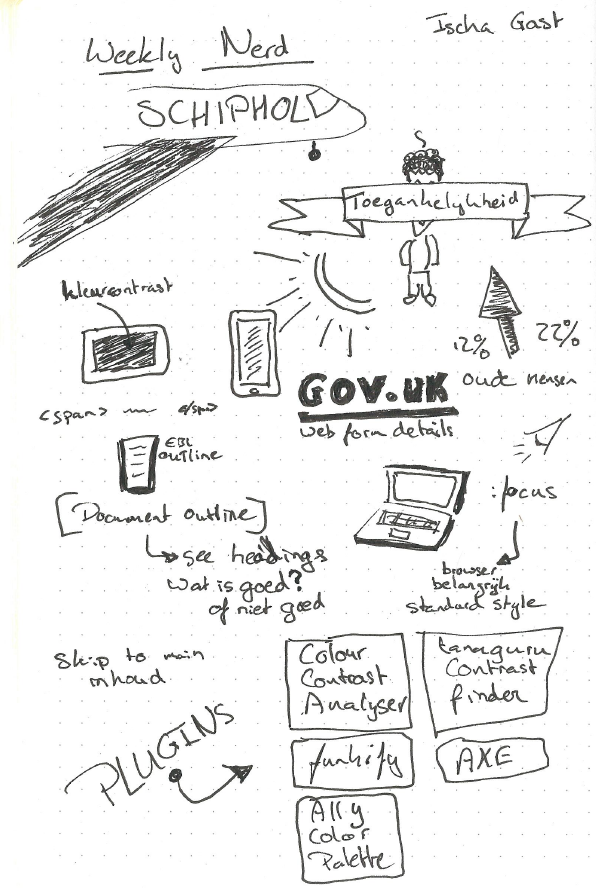 Ischa Gast
Weekly Nerd
SCHIPHOL
Toegankelykheid
kleurcontrast
12% 22%
oude mensen
GOV.UK
web form details
<span> </span>
outline
[Document outline]
see headings
wat is goed?
of niet goed
:focus
browser
belangrijk
standard style
Skip to main
inhoud
PLUGINS
Colour
Contrast
Analyser
tanaguru
Contrast
finder
funkify
AXE
A11y
Color
Palette